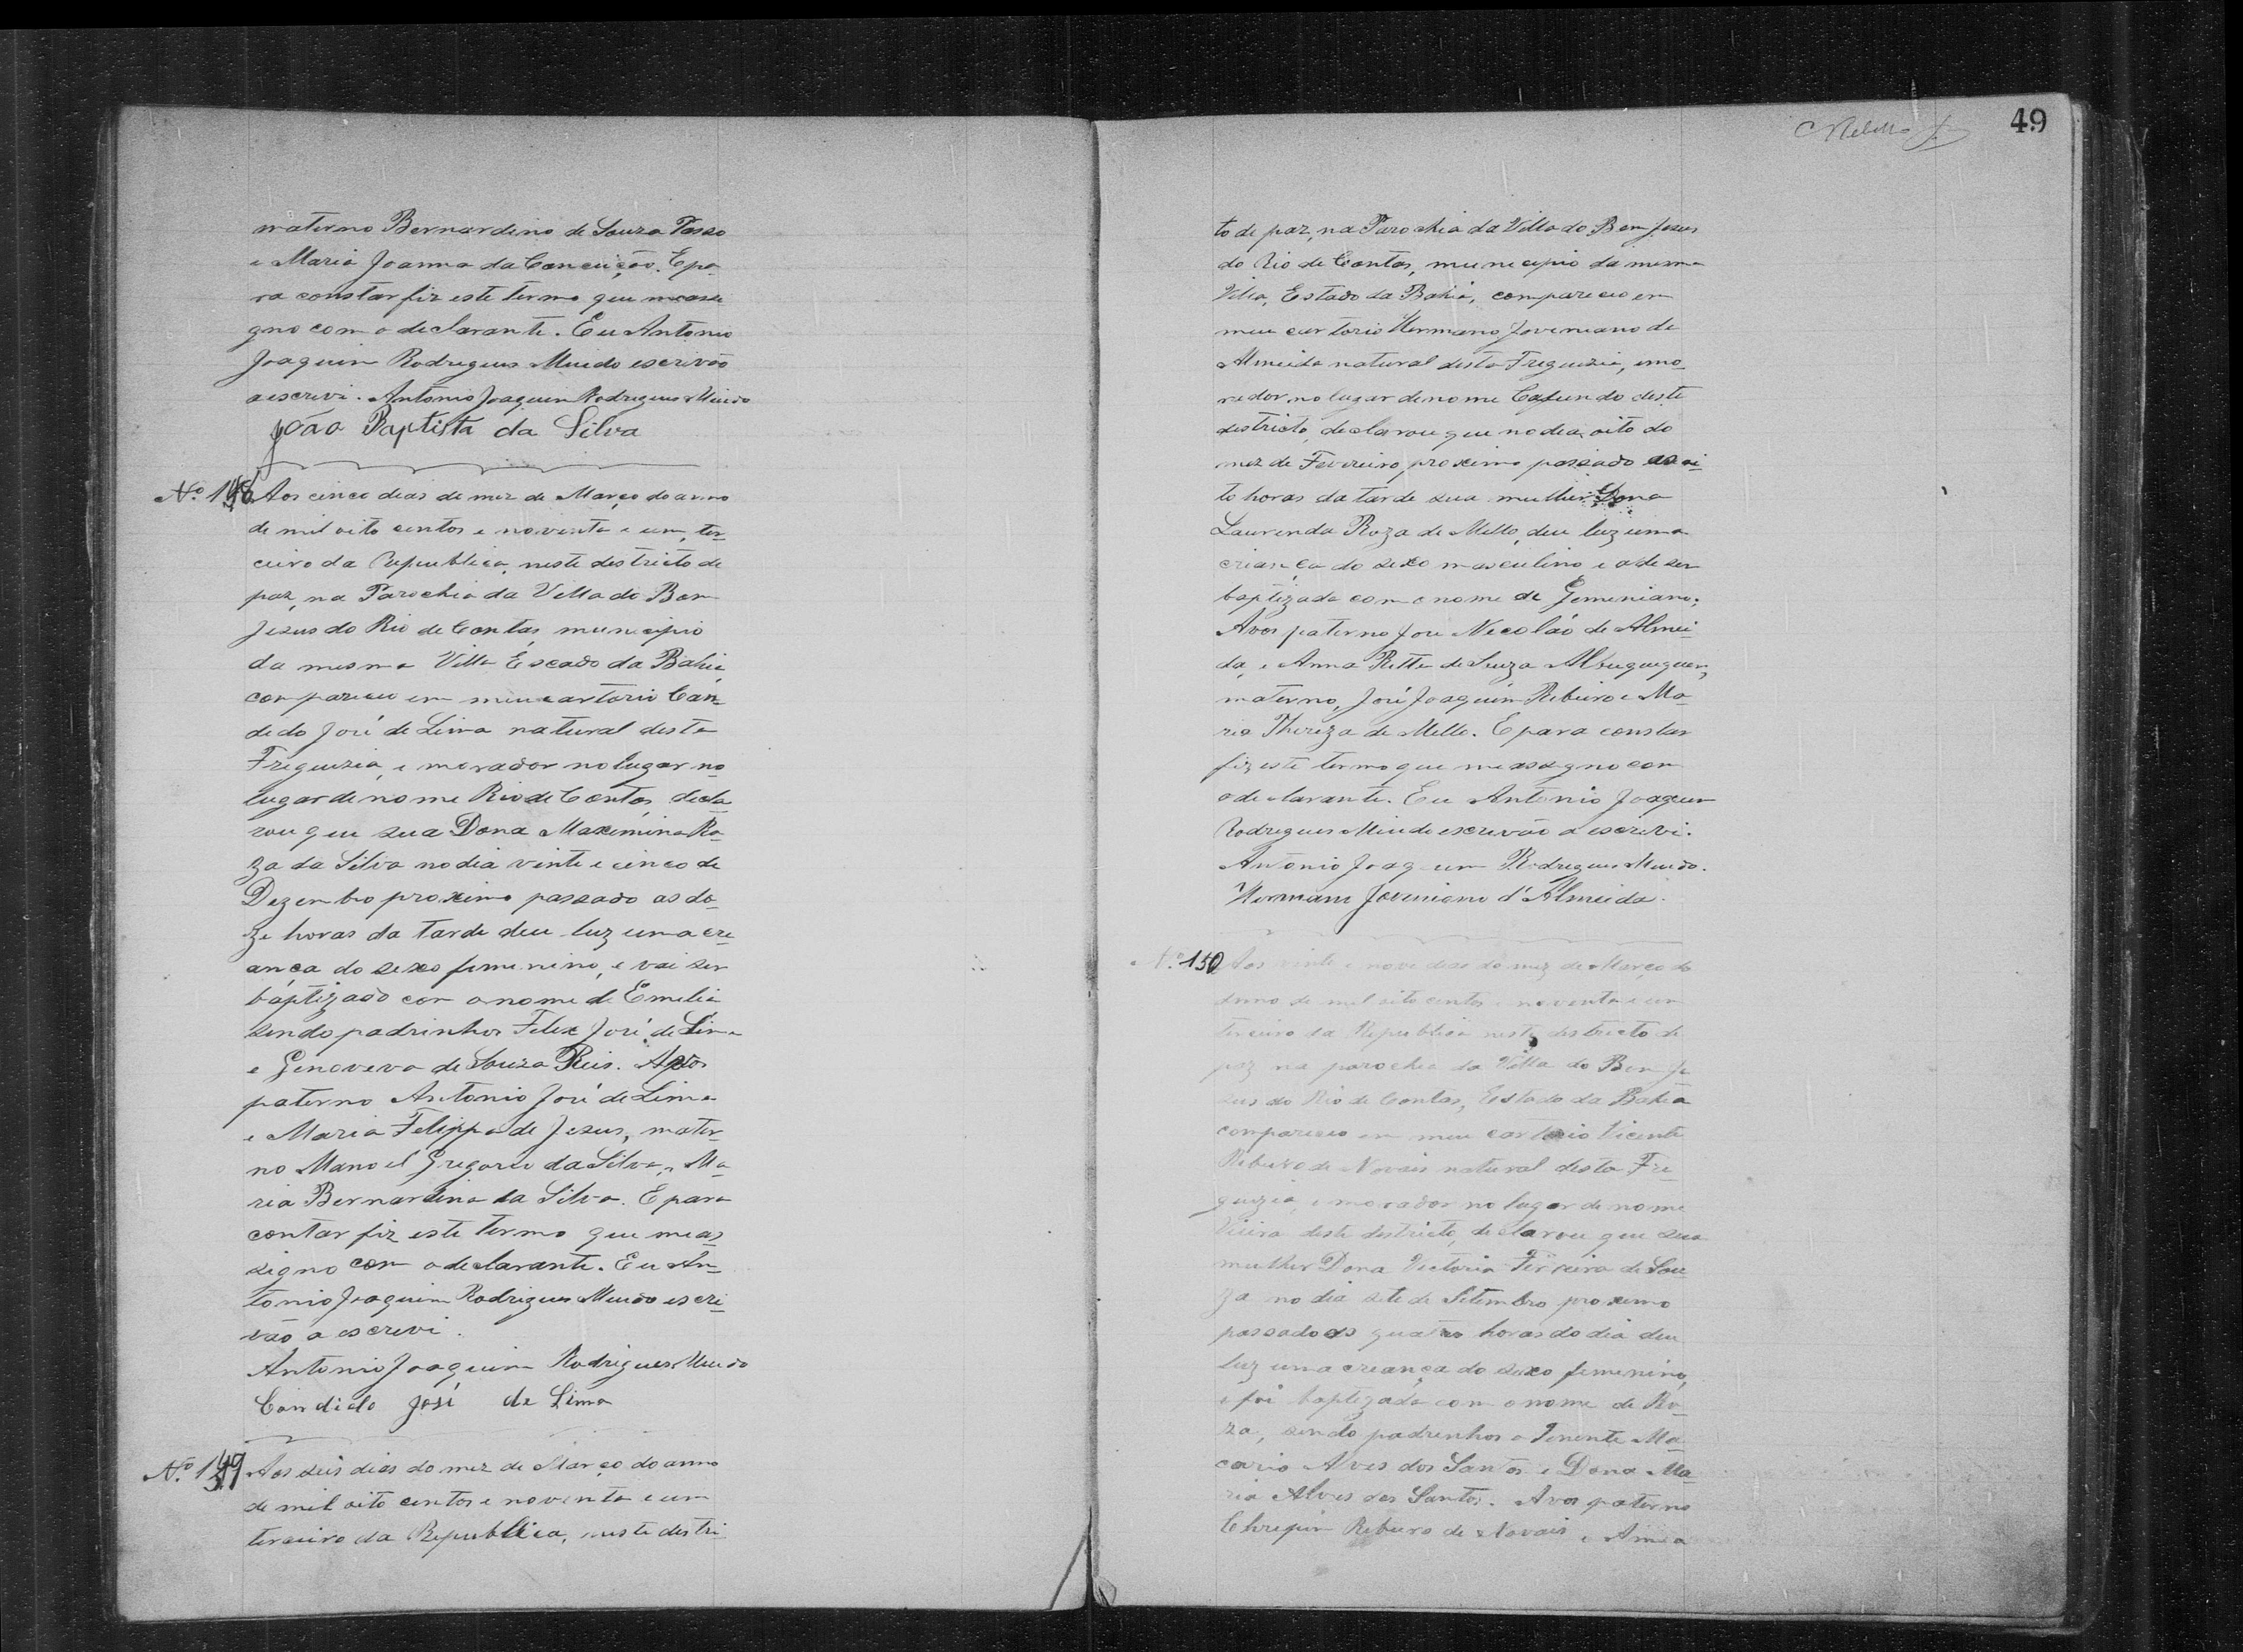 materno Bernardino de Souza Passo
e Maria Joanna da Conceição. E pa
ra constar fiz este termo que me assi
gno com o declarante. Eu Antonio
Joaquim Rodrigues Miudo escrivão
a escrevi. Antonio Joaquim Rodrigues Miudo
João Baptista da Silva
Nº 148 Aos cinco dias do mez de Março do anno
de mil oito centos e noventa e um, ter
ceiro da Republica, neste destricto de
paz, na Parochia da Villa do Bom
Jesus do Rio de Contas, municipio
da mesma Villa Escado da Bahia,
compareceu em meu cartorio Can
dido José de Lima natural desta
Freguezia, e morador no lugar no
lugar de nome Rio de Contas, decla
rou que sua Dona Maximina Ro
za da Silva no dia vinte e cinco de
Dezembro proximo passado as do
ze horas da tarde deu luz uma cre
ança do sexo femenino, e vai ser
baptizado com o nome de Emelia
sendo padrinhos Felix José de Lima
e Genoveva de Souza Reis. Avos
paterno Antonio José de Lima
e Maria Felippa de Jesus, mater
no Manoel Gregorio da Silva, Ma
ria Bernardina da Silva. E para
contar fiz este termo que me as
signo com o declarante. Eu An
tonio Joaquim Rodrigues Miudo escri
vão a escrevi.
Antonio Joaquim Rodrigues Miudo
Candido José de Lima
Nº 149 Aos seis dias do mez de Março do anno
de mil oito centos e noventa e um
terceiro da Republica, neste destri
49
to de paz, na Parochia da Villa do Bom Jesus
do Rio de Contas, municipio da mesma
Villa, Estado da Bahia, compareceu em
meu cartorio Hermano Joveniano de
Almeida natural desta Freguezia, e mo
rador no lugar de nome Cafundo deste
destricto, declarou que no dia oito do
mez de Fevereiro proximo passado as oi
to horas da tarde sua mulher Dona
Laurinda Roza de Mello, deu luz uma
criança do sexo masculino e a de ser
baptizada com o nome de Geminiano.
Avos paterno José Necoláo de Almei
da, e Anna Ritta de Souza Albuquerque,
materno, José Joaquim Ribeiro e Ma
ria Thereza de Mello. E para constar
fiz este termo que me assigno com
o declarante. Eu Antonio Joaquim
Rodrigues Miudo escrivão a escrevi.
Antonio Joaquim Rodrigues Miudo.
Hermano Joveniano d'Almeida.
Nº 150 Aos vinte e nove dias do mez de Março do
anno de mil oito centos e noventa e um
terceiro da Republica neste destricto de
paz na parochia da Villa do Bom Je
sus do Rio de Contas, Estado da Bahia
compareceu em meu cartorio Vicente
Ribeiro de Novais natural desta Fre
guezia, e morador no lugar de nome
Vieira deste destricto, declarou que sua
mulher Dona Victoria Ferreira de Sou
za no dia sete de Setembro proximo
passado as quatro horas do dia deu
luz uma creança do sexo femenino,
e foi baptizada com o nome de Ro
za, sendo padrinhos o Tenente Ma
cario Alves dos Santos e Dona Ma
ria Alves dos Santos. Avos paterno
Chrispim Ribeiro de Novais e Anna